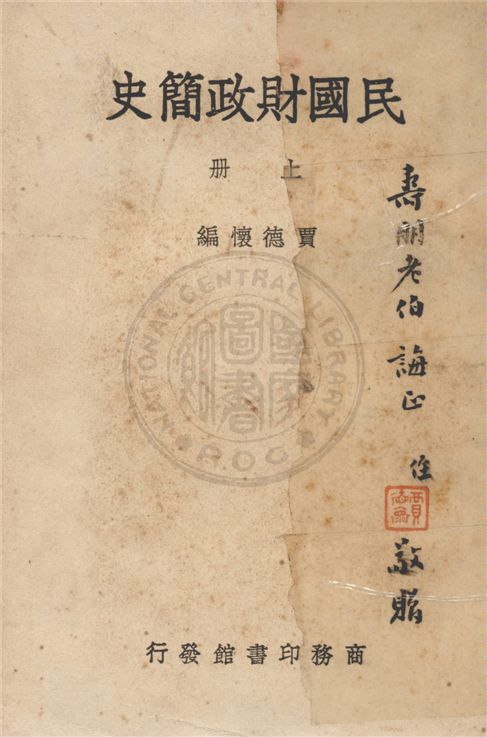 民國財政簡史
上冊
賈德懷編
壽朋老伯 誨正
侄
賈德懷
敬贈
商務印書館發行
NATIONAL CENTRAL LIBRARY
國家圖書館
ROC